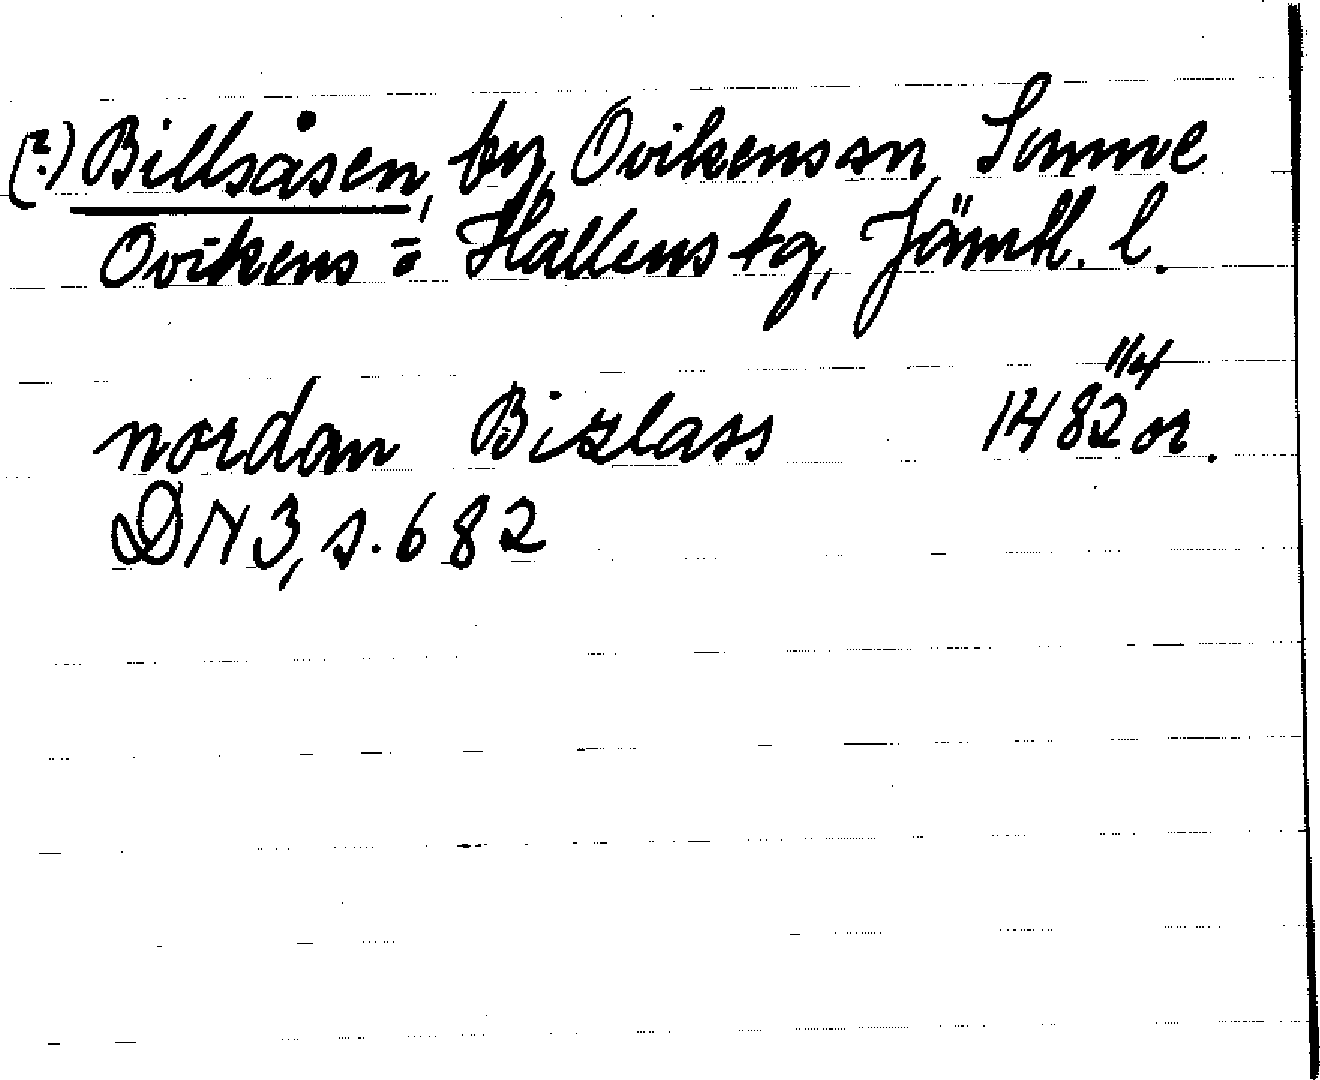 (?) Billsåsen, by, Ovikens sn, Sunne
Ovikens o Hallens tg, Jämtl. l.
nordan Bizlass 1482 11/4 or.
DN 3, s. 682